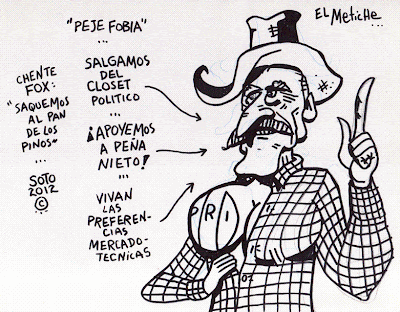 "PEJE FOBIA"
...
EL METICHE...
CHENTE
FOX:
"SAQUEMOS
AL PAN
DE LOS
PINOS"
...
SOTO
2012
©
SALGAMOS
DEL
CLOSET
POLITICO
...
¡APOYEMOS
A PEÑA
NIETO!
...
VIVAN
LAS
PREFEREN-
CIAS
MERCADO-
TECNICAS
PRI